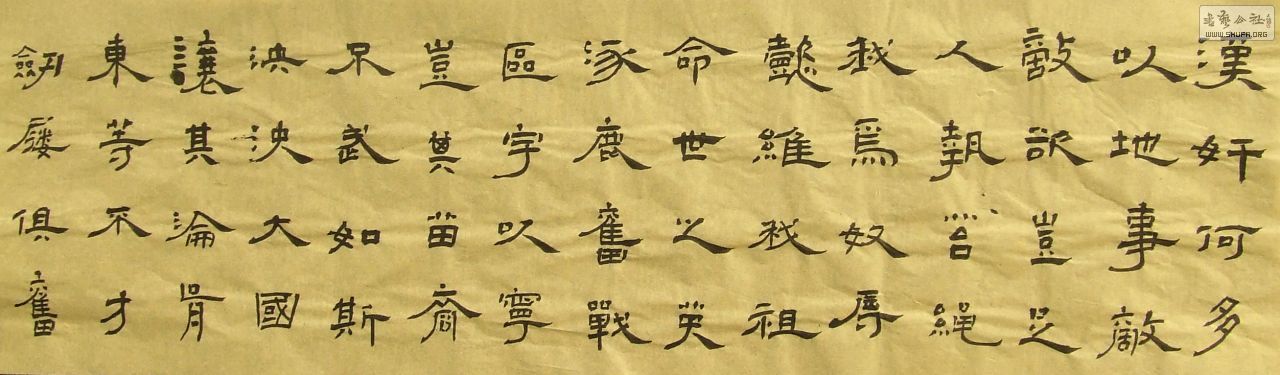 漢奸何多
以地事敵
敵欲豈足
人執笞繩
我爲奴辱
懿維我祖
命世之英
涿鹿奮戰
區宇以寧
豈其苗裔
不武如斯
泱泱大國
讓其淪胥
東等不才
劍屨俱奮
书艺公社
WWW.SHUFA.ORG